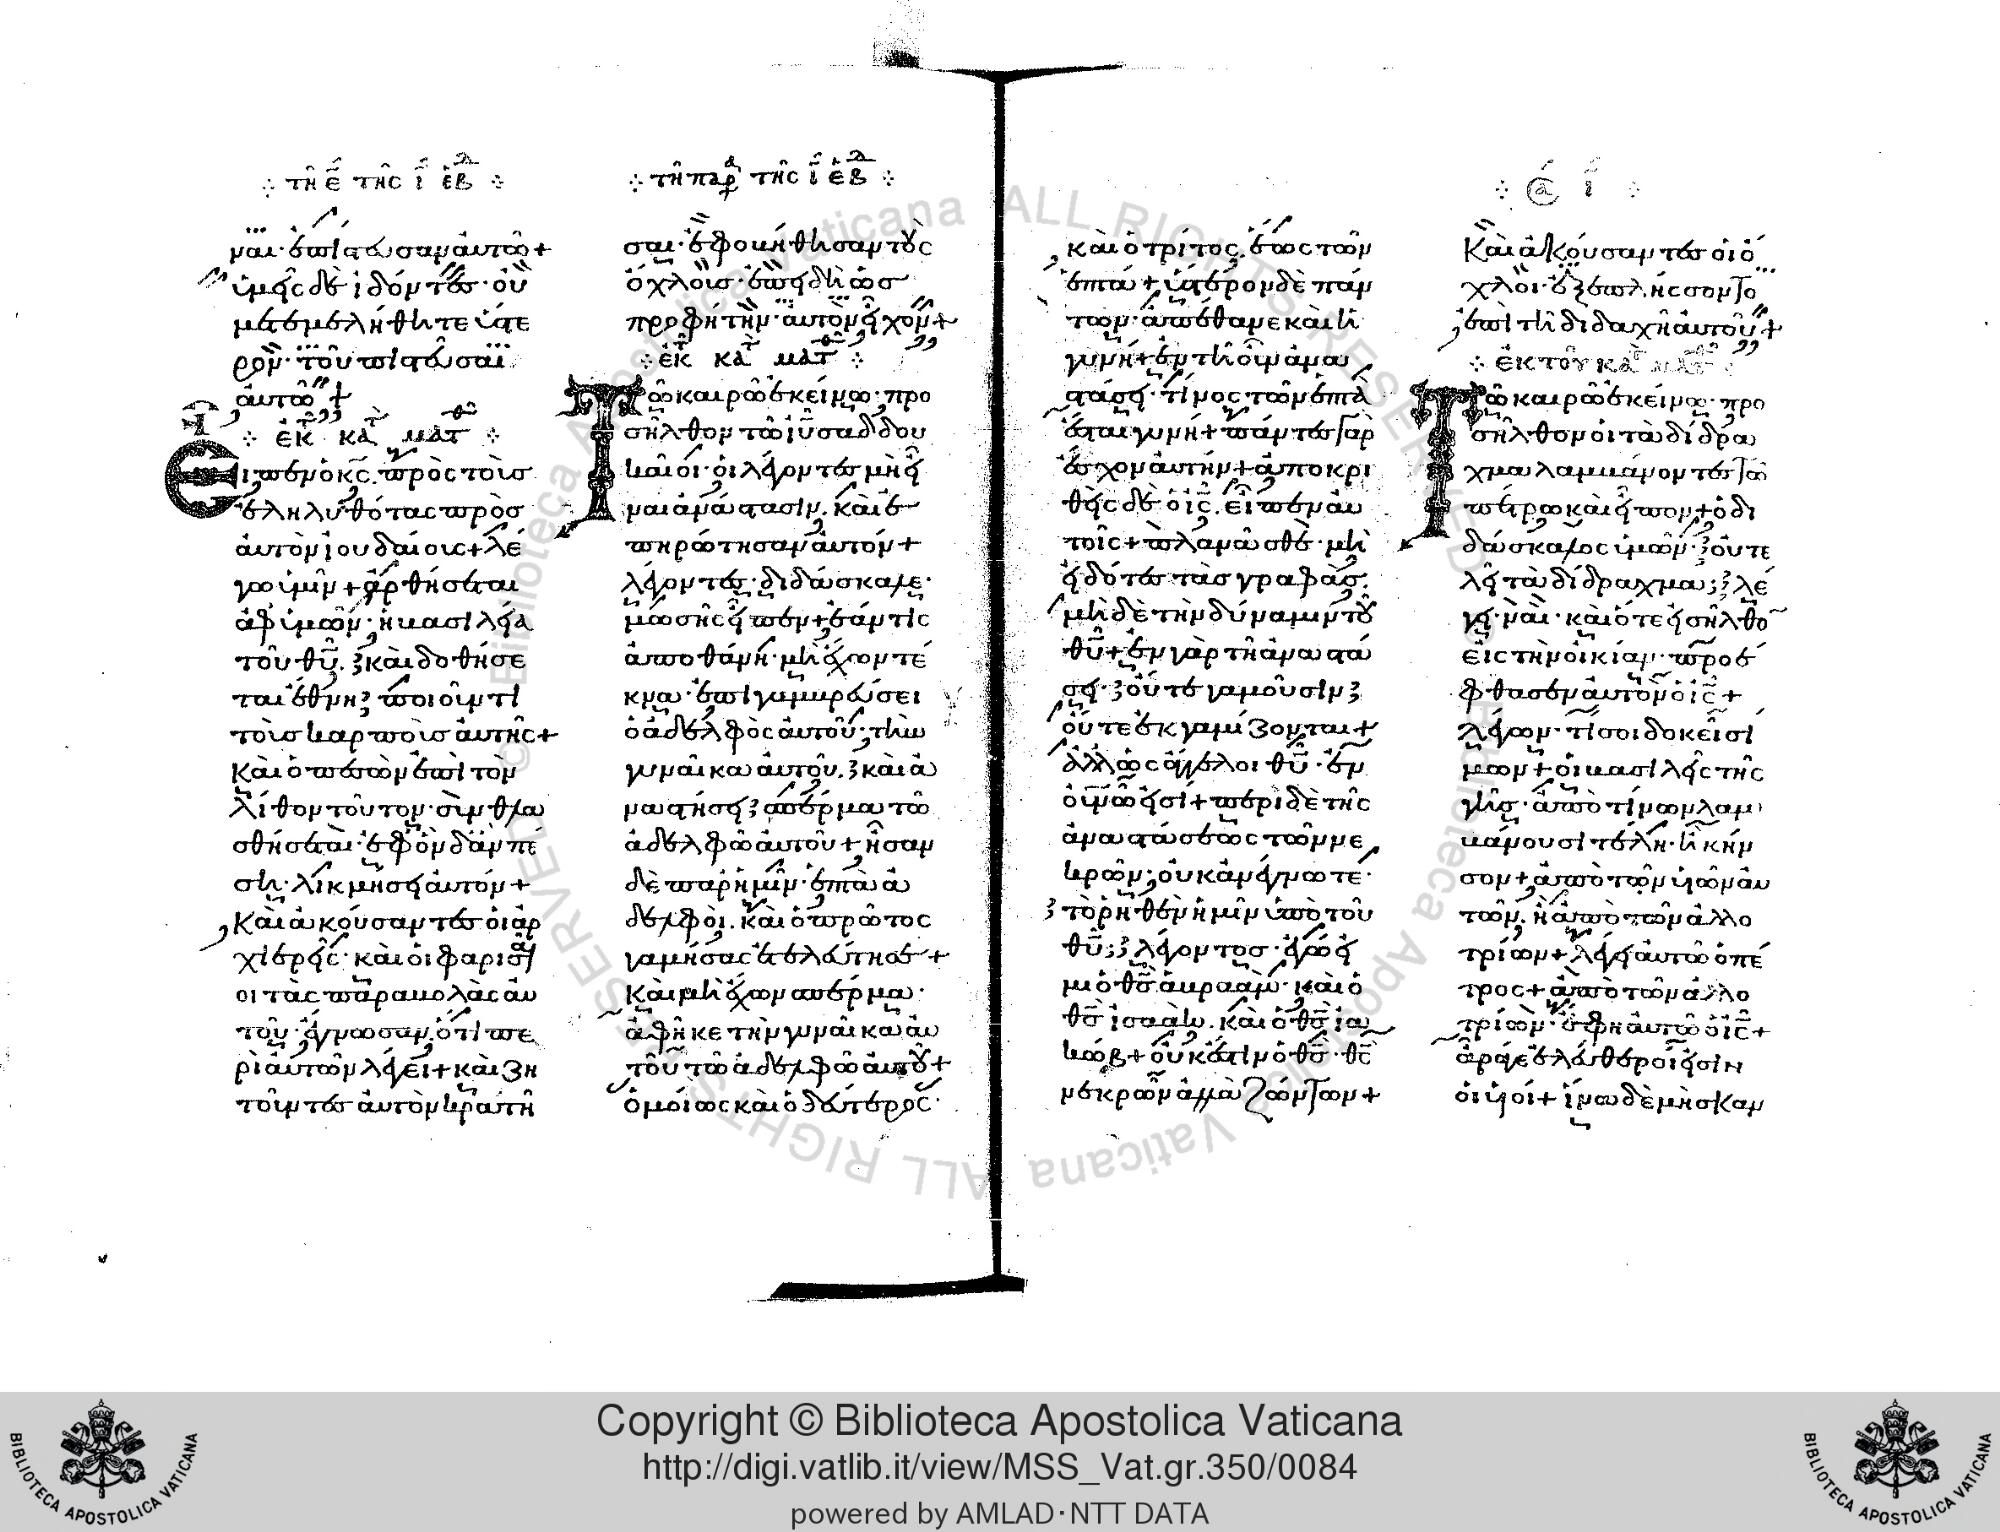 τῆ ε̄ τῆς ῑ ἑβδ
ναι· ἐπίστωσαν αὐτῶ+
ὑμεῖς δὲ ἰδόντες· οὐ
μετεμελήθητε ὕστε
ρον· τοῦ πιστεῦσαι
αὐτῶ +
ἐκ τοῦ κατ ματθ
Εἶπεν ὁ κ̄ς. πρὸς τοὺς
ἐληλυθότας πρὸς
αὐτὸν ἰουδαίους+ λέ
γω ὑμῖν+ ἀρθήσεται
ἀφ ὑμῶν· ἡ βασιλεία
τοῦ θῡ. καὶ δοθήσε
ται ἔθνει ποιοῦντι
τοὺς καρποὺς αὐτῆς+
Καὶ ὁ πεσὼν ἐπὶ τὸν
λίθον τοῦτον· συνθλα
σθήσεται· ἐφ ὃν δἂν πέ
ση· λικμήσει αὐτόν+
Καὶ ἀκούσαντες οἱ ἀρ
χιερεῖς· καὶ οἱ φαρισαῖ
οι τὰς παραβολὰς αὐ
τοῦ· ἔγνωσαν. ὅτι πε
ρὶ αὐτῶν λέγει+ καὶ ζη
τοῦντες αὐτὸν κρατῆ
τῆ παρ τῆς ῑ ἑβδ
σαι· ἐφοβήθησαν τοὺς
ὄχλους· ἐπειδὴ ὡς
προφήτην· αὐτὸν εἶχον+
ἐκ κατ ματθ
Τῶ καιρῶ ἐκείνω· προ
σῆλθον τῶ ῑῡ σαδδου
καῖοι· οἱ λέγοντες μὴ εἶ
ναι ἀνάστασιν. καὶ ἐ
πηρώτησαν αὐτόν+
λέγοντες· διδάσκαλε·
μωσῆς εἶπεν+ ἐάν τις
ἀποθάνη· μὴ ἔχων τέ
κνα· ἐπιγαμβρεύσει
ὁ ἀδελφὸς αὐτοῦ· τὴν
γυναῖκα αὐτοῦ. καὶ ἀ
ναστήσει σπέρμα τῶ
ἀδελφῶ αὐτοῦ+ ἦσαν
δὲ παρ ἡμῖν· ἑπτὰ ἀ
δελφοὶ. καὶ ὁ πρῶτος
γαμήσας ἐτελεύτησε+
Καὶ μὴ ἔχων σπέρμα·
ἀφῆκε τὴν γυναῖκα αὐ
τοῦ τῶ ἀδελφῶ αὐτοῦ+
ὁμοίως καὶ ὁ δεύτερος·
καὶ ὁ τρίτος. ἕως τῶν
ἑπτά+ ὕστερον δὲ πάν
των· ἀπέθανε καὶ ἡ
γυνή+ ἐν τῆ οὖν ἀνα
στάσει· τίνος τῶν ἑπτὰ
ἔσται γυνή+ πάντες γὰρ
ἔσχον αὐτήν+ ἀποκρι
θεὶς δὲ ὁ ῑς. εἶπεν αὐ
τοῖς+ πλανᾶσθε· μὴ
εἰδότες τὰς γραφὰς.
μὴ δὲ τὴν δύναμιν τοῦ
θῡ+ ἐν γὰρ τῆ ἀναστά
σει· οὔτε γαμοῦσιν
οὔτε ἐκγαμίζονται+
ἀλλ ὡς ἄγγελοι θῡ· ἐν
οὐνῶ εἰσί+ περὶ δὲ τῆς
ἀναστάσεως τῶν νε
κρῶν· οὐκ ἀνέγνωτε·
τὸ ῥηθὲν ἡμῖν ὑπὸ τοῦ
θῡ; λέγοντος· ἐγώ εἰ
μι ὁ θ̄ς ἀβραάμ· καὶ ὁ
θ̄ς ἰσαάκ. καὶ ὁ θ̄ς ἰα
κώβ+ οὐκ ἔστιν ὁ θ̄ς· θ̄ς
νεκρῶν ἀλλὰ ζώντων+
Καὶ ἀκούσαντες οἱ ὄ
χλοι· ἐξεπλήσσοντο
ἐπὶ τῆ διδαχῆ αὐτοῦ+
ἐκ τοῦ κατ ματθ
Τῶ καιρῶ ἐκείνω· προ
σῆλθον οἱ τὰ δίδρα
χμα λαμβάνοντες τῶ
πέτρω καὶ εἶπον+ ὁ δι
δάσκαλος ὑμῶν· οὐ τε
λεῖ τὰ δίδραχμα; λέ
γει· ναὶ· καὶ ὅτε εἰσῆλθο
εἰς τὴν οἰκίαν· προέ
φθασεν αὐτὸν ὁ ῑς+
λέγων· τί σοι δοκεῖ σί
μων+ οἱ βασιλεῖς τῆς
γῆς· ἀπὸ τίνων λαμ
βάνουσι τέλη· ἢ κῆν
σον+ ἀπὸ τῶν υἱῶν αὐ
τῶν. ἢ ἀπὸ τῶν ἀλλο
τρίων+ λέγει αὐτῶ ὁ πέ
τρος+ ἀπὸ τῶν ἀλλο
τρίων· ἔφη αὐτῶ ὁ ῑς+
ἄραγε ἐλεύθεροί εἰσιν
οἱ υἱοί+ ἵνα δὲ μὴ σκαν
Copyright © Biblioteca Apostolica Vaticana
http://digi.vatlib.it/view/MSS_Vat.gr.350/0084
powered by AMLAD·NTT DATA
BIBLIOTECA APOSTOLICA VATICANA
BIBLIOTECA APOSTOLICA VATICANA
© Biblioteca Apostolica Vaticana ALL RIGHTS RESERVED
© Biblioteca Apostolica Vaticana ALL RIGHTS RESERVED